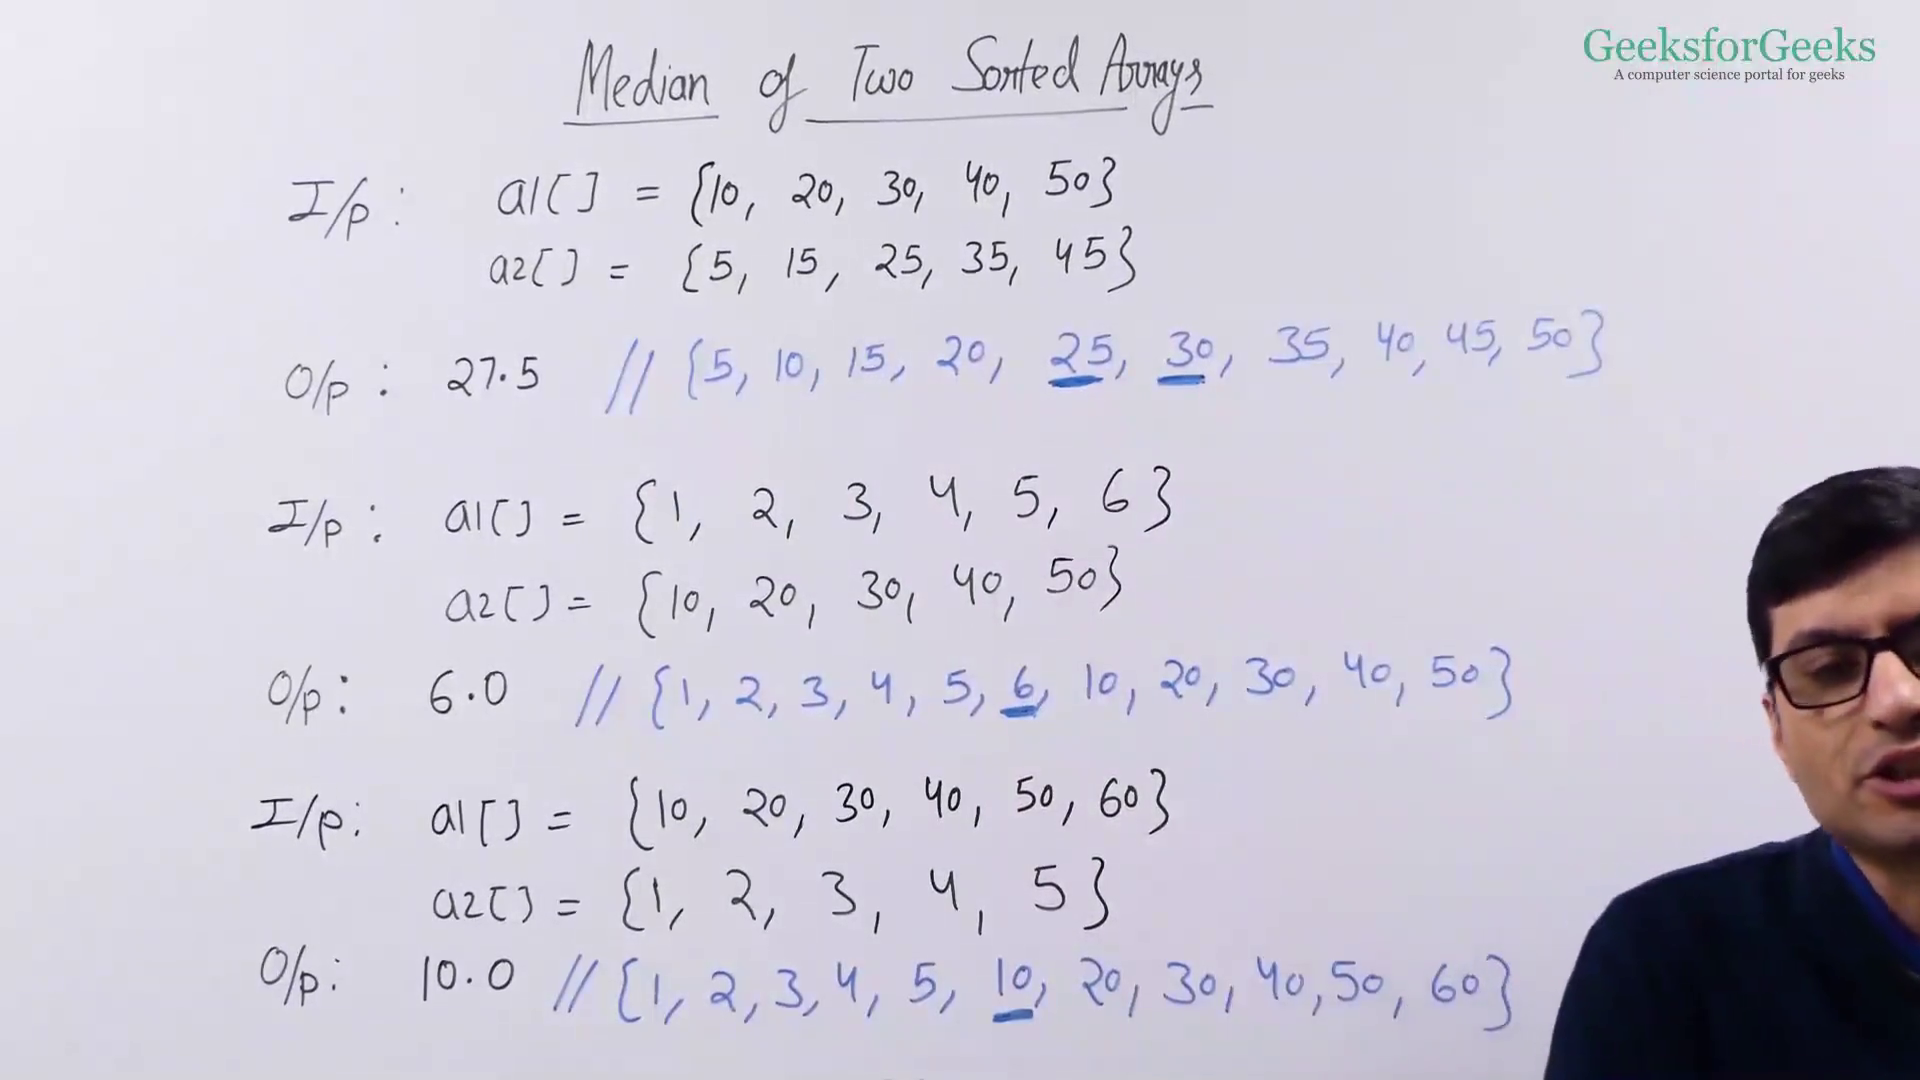 GeeksforGeeks
A computer science portal for geeks
Median of Two Sorted Arrays
I/p : a1[] = {10, 20, 30, 40, 50}
a2[] = {5, 15, 25, 35, 45}
O/p : 27.5 // {5, 10, 15, 20, 25, 30, 35, 40, 45, 50}
I/p : a1[] = {1, 2, 3, 4, 5, 6}
a2[] = {10, 20, 30, 40, 50}
O/p : 6.0 // {1, 2, 3, 4, 5, 6, 10, 20, 30, 40, 50}
I/p : a1[] = {10, 20, 30, 40, 50, 60}
a2[] = {1, 2, 3, 4, 5}
O/p : 10.0 // {1, 2, 3, 4, 5, 10, 20, 30, 40, 50, 60}